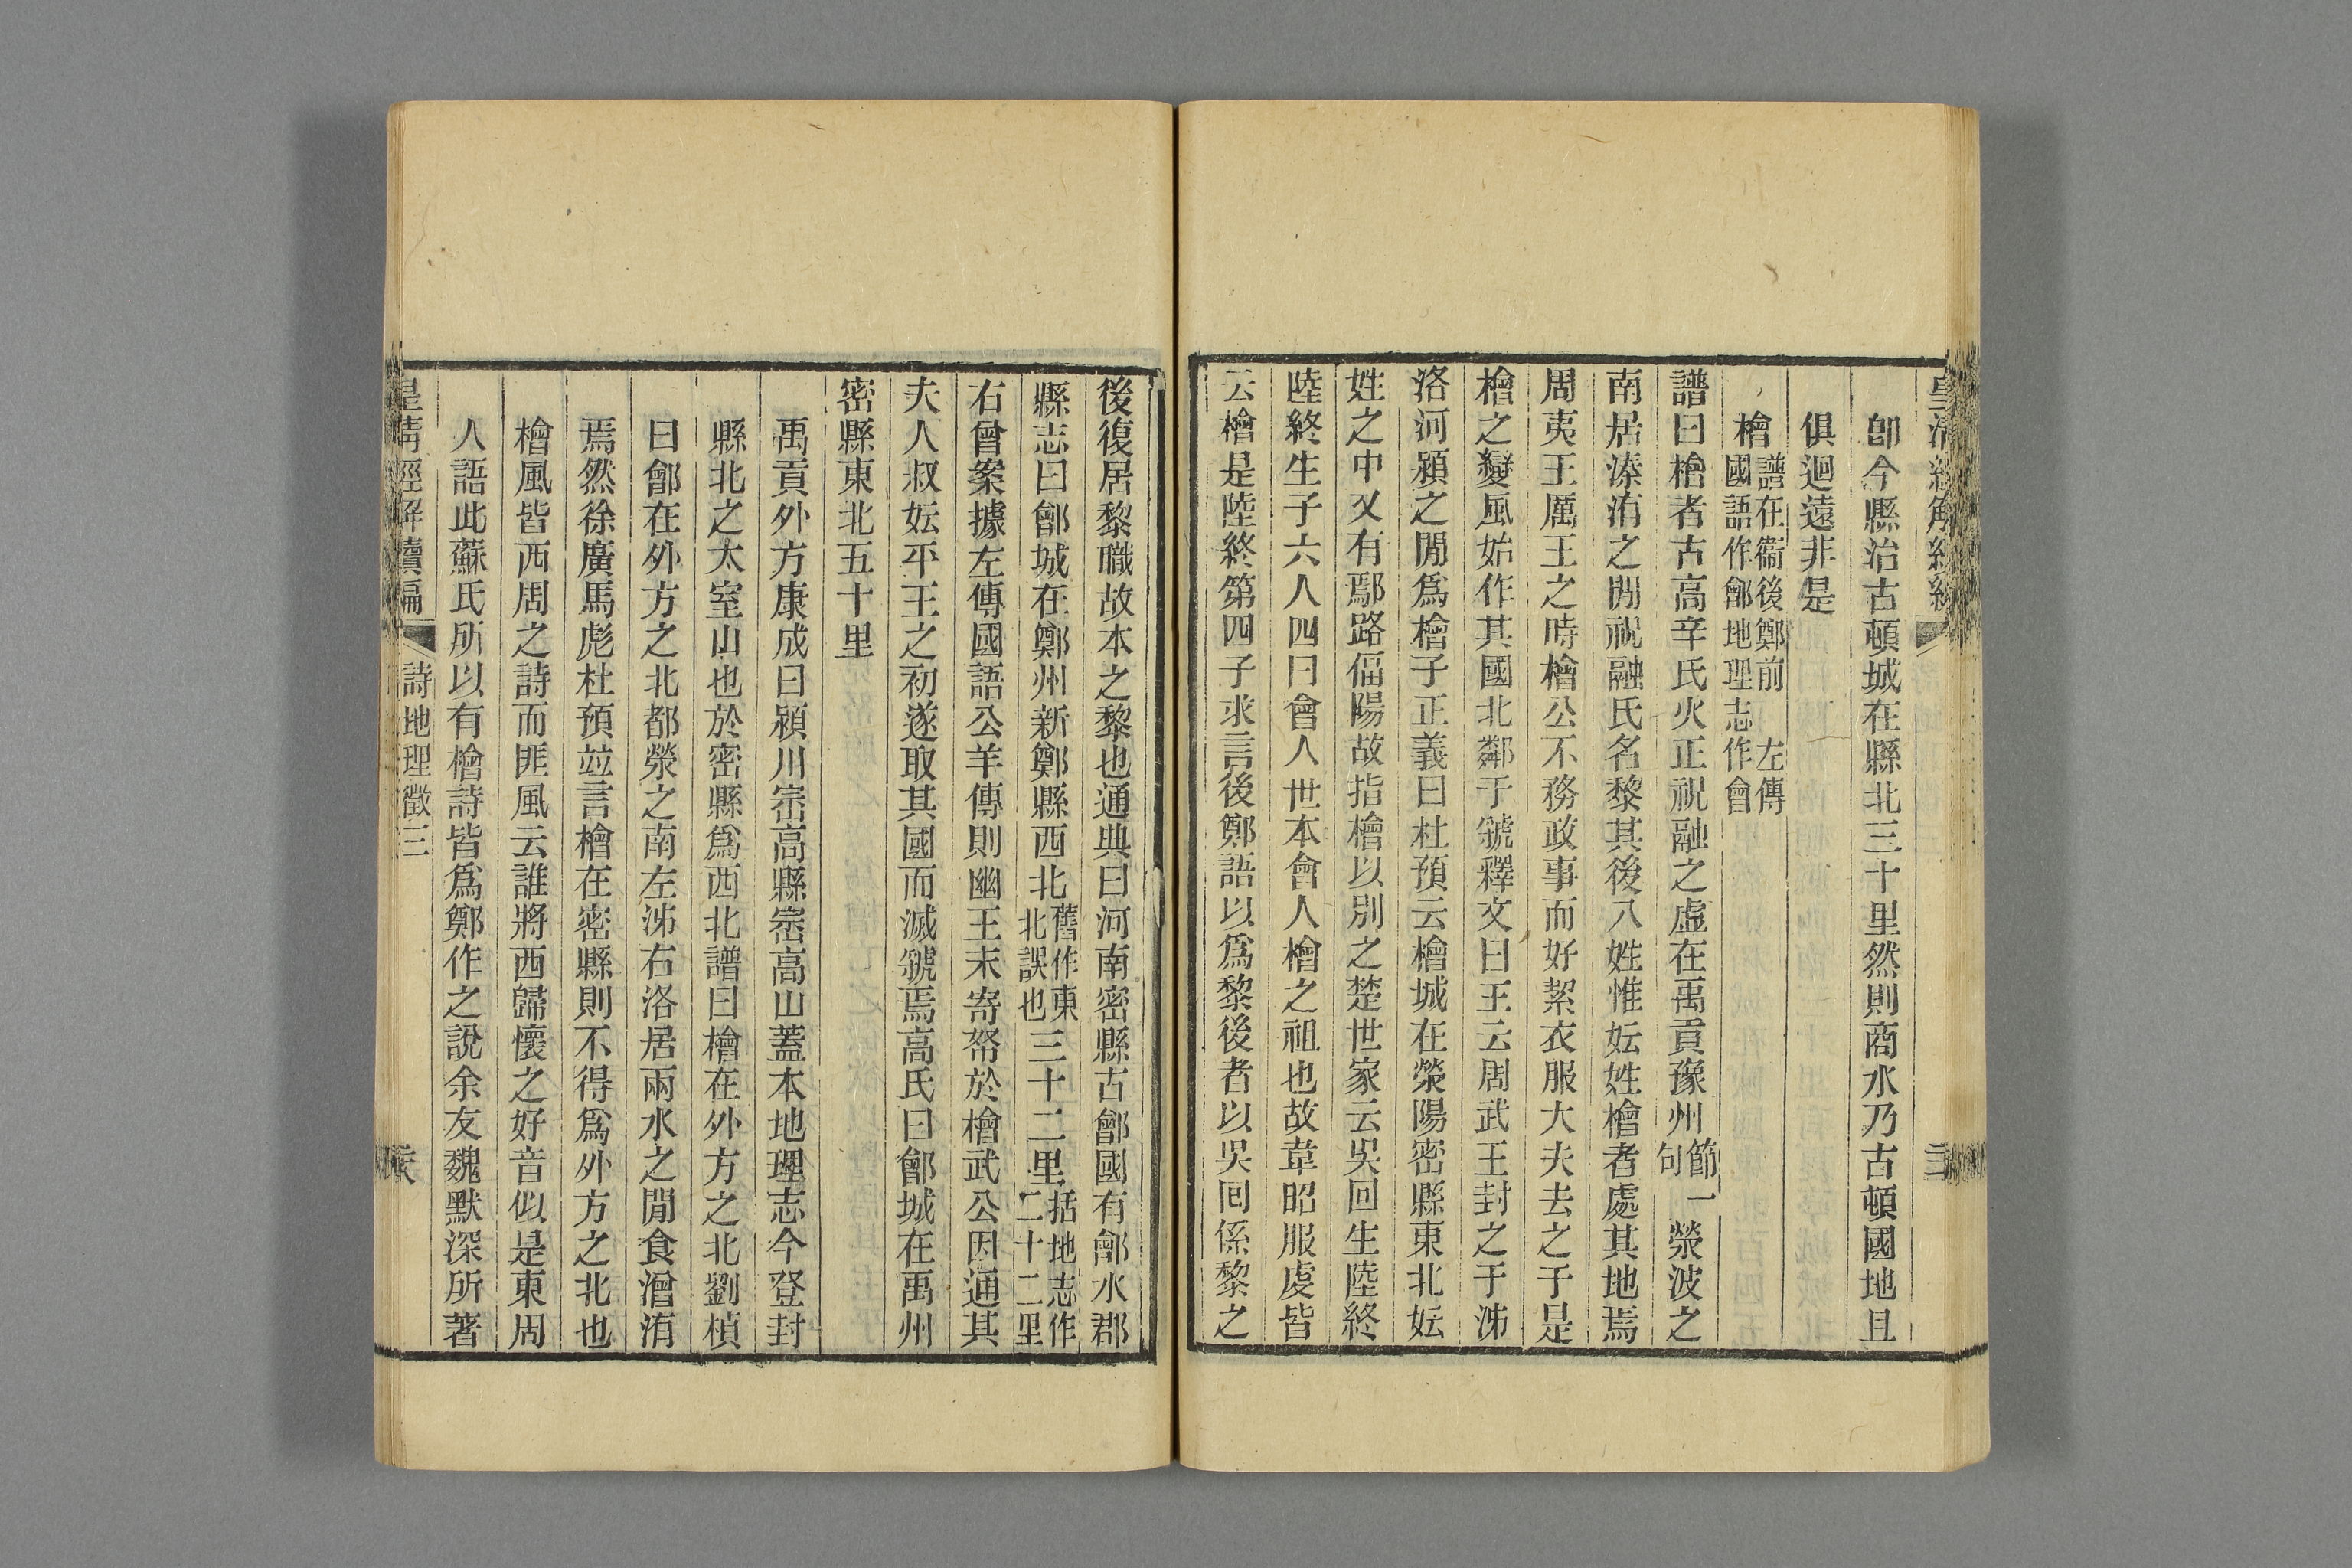 卽今縣治古頓城在縣北三十里然則商水乃古頓國地且
俱迴遠非是
檜譜在衞後鄭前　左傳國語作鄶地理志作會
譜曰檜者古高辛氏火正祝融之虛在禹貢豫州節一句滎波之
南居溱洧之閒祝融氏名黎其後八姓惟妘姓檜者處其地焉
周夷王厲王之時檜公不務政事而好絜衣服大夫去之于是
檜之變風始作其國北鄰于虢釋文曰王云周武王封之于泲
洛河潁之閒爲檜子正義曰杜預云檜城在滎陽密縣東北妘
姓之中又有鄢路偪陽故指檜以別之楚世家云吳回生陸終
陸終生子六人四曰會人世本會人檜之祖也故韋昭服虔皆
云檜是陸終第四子求言後鄭語以爲黎後者以吳囘係黎之
後復居黎職故本之黎也通典曰河南密縣古鄶國有鄶水郡
縣志曰鄶城在鄭州新鄭縣西北舊作東北誤也三十二里括地志作二十二里
右曾案據左傳國語公羊傳則幽王末寄帑於檜武公因通其
夫人叔妘平王之初遂取其國而滅虢焉高氏曰鄶城在禹州
密縣東北五十里
禹貢外方康成曰潁川崇高縣崇高山蓋本地理志今登封
縣北之太室山也於密縣爲西北譜曰檜在外方之北劉楨
曰鄶在外方之北都滎之南左泲右洛居兩水之閒食溱洧
焉然徐廣馬彪杜預竝言檜在密縣則不得爲外方之北也
檜風皆西周之詩而匪風云誰將西歸懷之好音似是東周
人語此蘇氏所以有檜詩皆爲鄭作之說余友魏默深所著
皇清經解續編　詩地理徵三